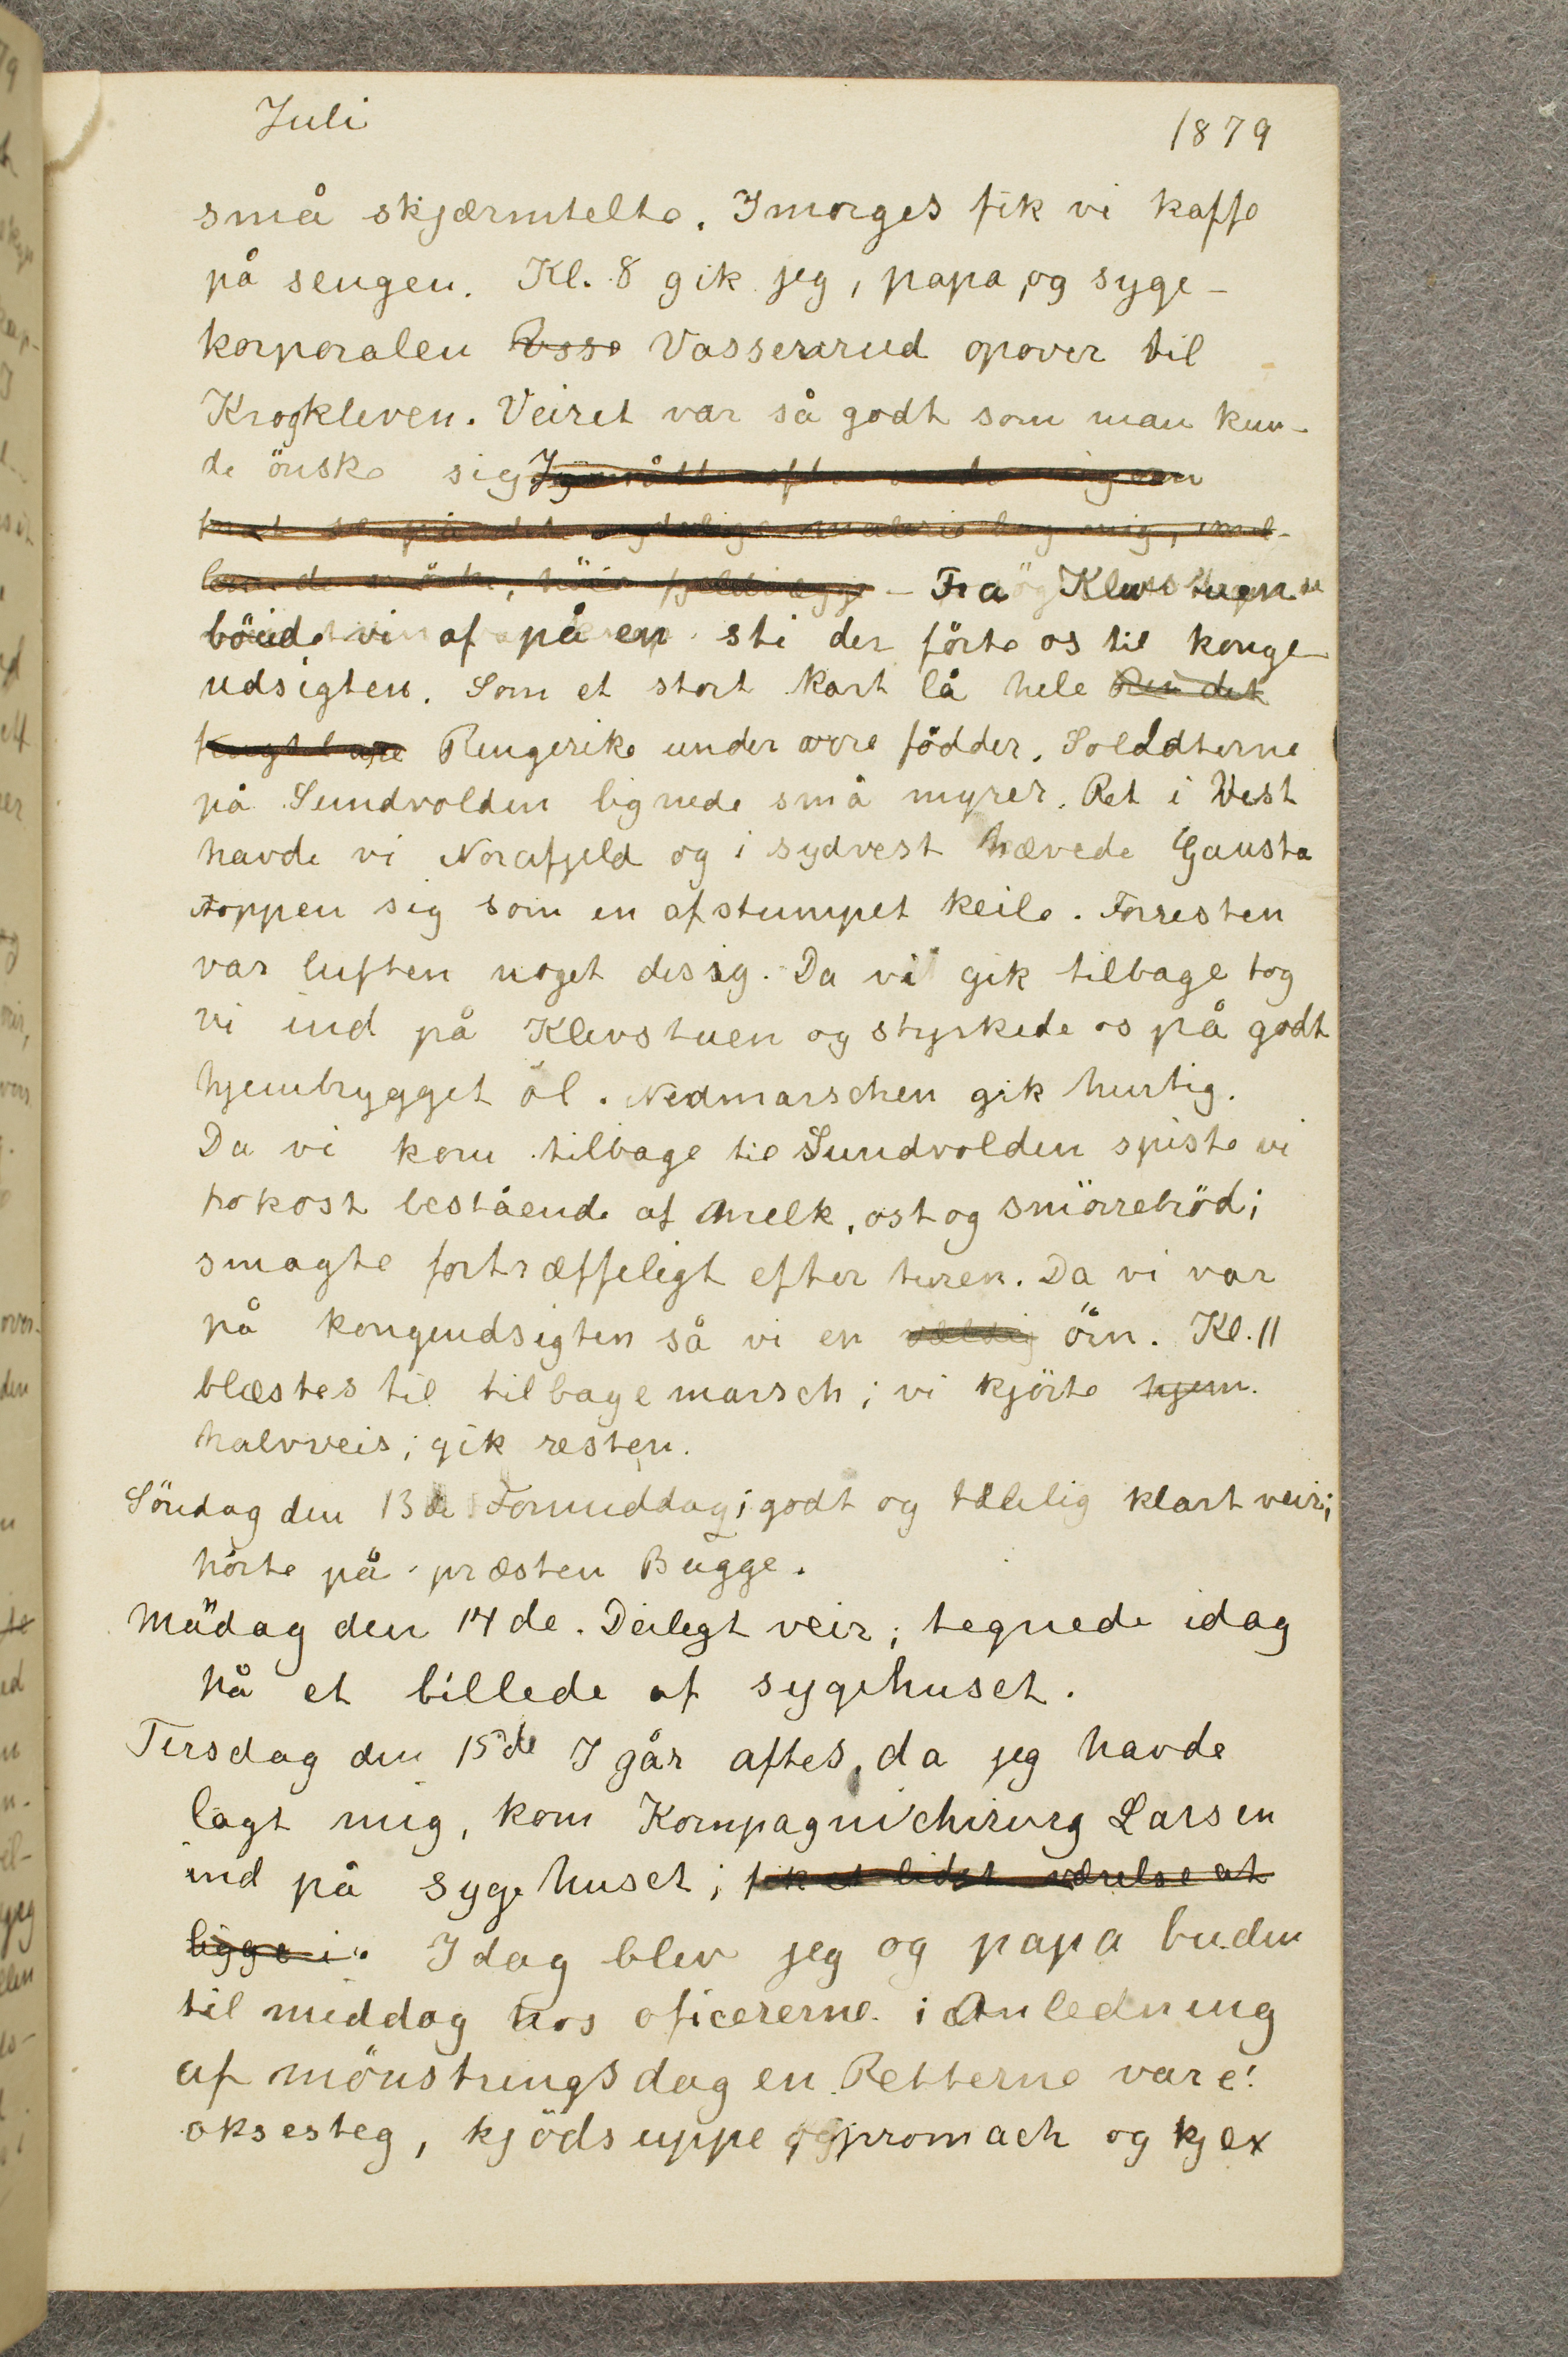 Juli 1879
små skjærmtelte. Imorges fik vi kaffe
på sengen. Kl. 8 gik jeg, papa, og syge-
korporalen Vasserrud opover til
Krogkleven. Veiret var så godt som man kun-
de önske sig
Fra Klevstuen
böiede vi af på en sti der förte os til konge-
udsigten. Som et stort kart lå hele
frugtbare Ringerike under vore födder. Soldaterne
på Sundvolden lignede små myrer. Ret i Vest
havde vi Norefjeld og i sydvest hævede Gausta
toppen sig som en afstumpet keile. Forresten
var luften noget disig. Da vi gik tilbage tog
vi ind på Klevstuen og styrkede os på godt
hjembrygget öl. Nedmarschen gik hurtig.
Da vi kom tilbage til Sundvolden spiste vi
frokost bestående af melk, ost og smörrebröd;
smagte fortræffeligt efter turen. Da vi var
på kongeudsigten så vi en vældig örn. Kl. 11
blæstes til tilbagemarsch; vi kjörte hjem.
halvveis; gik resten.
Söndag den 13de Formiddag; godt og tålelig klart veir;
hörte på præsten Bugge.
Mådag den 14de. Deilegt veir; tegnede idag
på et billede af sygehuset.
Tirsdag den 15de I går aftes, da jeg havde
lagt mig, kom Kompagnichirurg Larsen
ind på sygehuset; fik et lidet værelse at
ligge i. Idag blev jeg og papa buden
til middag hos oficererne i Anledning
af mönstringsdagen. Retterne vare:
oksesteg, kjödsuppe, og promach og kjex